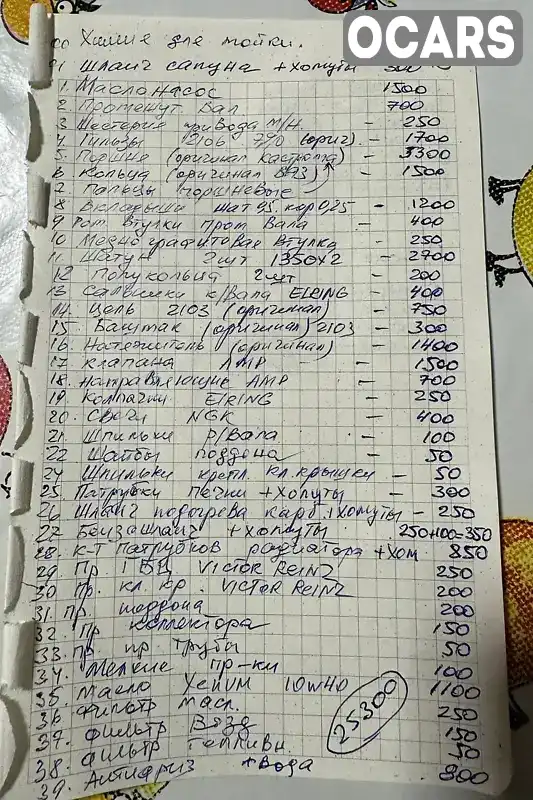 OCARS
00 Химие для мойки.
01 Шланг сапуна + хомуты 300
1. Маслонасос 1500
2. Промежут вал 700
3 Шестерня привода М/Н. - 250
4 Гильзы 2106 79,0 (ориг) - 1700
5. Поршне (оригинал Кастрома) - 3300
6 Кольца (оригинал - 1500
7 Пальцы поршневые
8 Вкладыши шат 95. кор 0,25 - 1200
9 Рем втулки пром вала - 400
10 Медно графитовая втулка - 250
11. Шатун 2шт 1350x2 - 2700
12 Полукольца 2шт - 200
13 Сальники к/вала ELRING - 400
14. Цепь 2103 (оригинал) - 750
15. Башмак (оригинал) 2103 - 300
16. Натяжитель (оригинал) - 1400
17. клапана AMP - 1500
18. направляющие AMP - 700
19. Колпачки ELRING - 250
20. Свечи NGK - 400
21. Шпильки р/вала - 100
22 Шайбы поддона - 50
24 Шпильки крепл. кл. крышки - 50
25. Патрубки печки + хомуты - 300
26 Шланг подогрева карб. + хомуты - 250
27 Бензошланг + хомуты 250+100=350
28. к-т патрубков радиатора + хом 850
29. Пр ГБЦ VICTOR REINZ 250
30 Пр. кл. кр. VICTOR REINZ 200
31. пр. поддона 200
32. Пр коллектора 150
33. Пр пр трубы 50
34. Мелкие пр-ки 100
35. Масло Xenum 10w40 1100
36 Фильтр масл. 250
37. Фильтр Возд 150
38. Фильтр Топливн 50
39. Антифриз + вода 800
25300